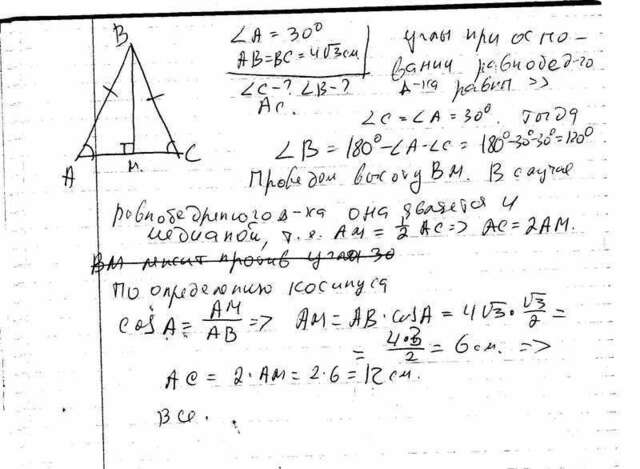 B
A
M
C
∠A = 30°
AB=BC=4√3см
∠C-? ∠B-?
AC.
углы при осно-
вании равнобед-го
Δ-ка равны =>
∠C=∠A=30°. Тогда
∠B=180°-∠A-∠C=180°-30°-30°=120°
Проведём высоту BM. В случае
равнобедренного Δ-ка она является и
медианой, т.е. AM=1/2 AC=> AC=2AM.
BM лежит против угла 30
По определению косинуса
cosA=AM/AB=> AM=AB·cosA=4√3·√3/2=
=4·3/2=6см. =>
AC=2·AM=2·6=12см.
Все.